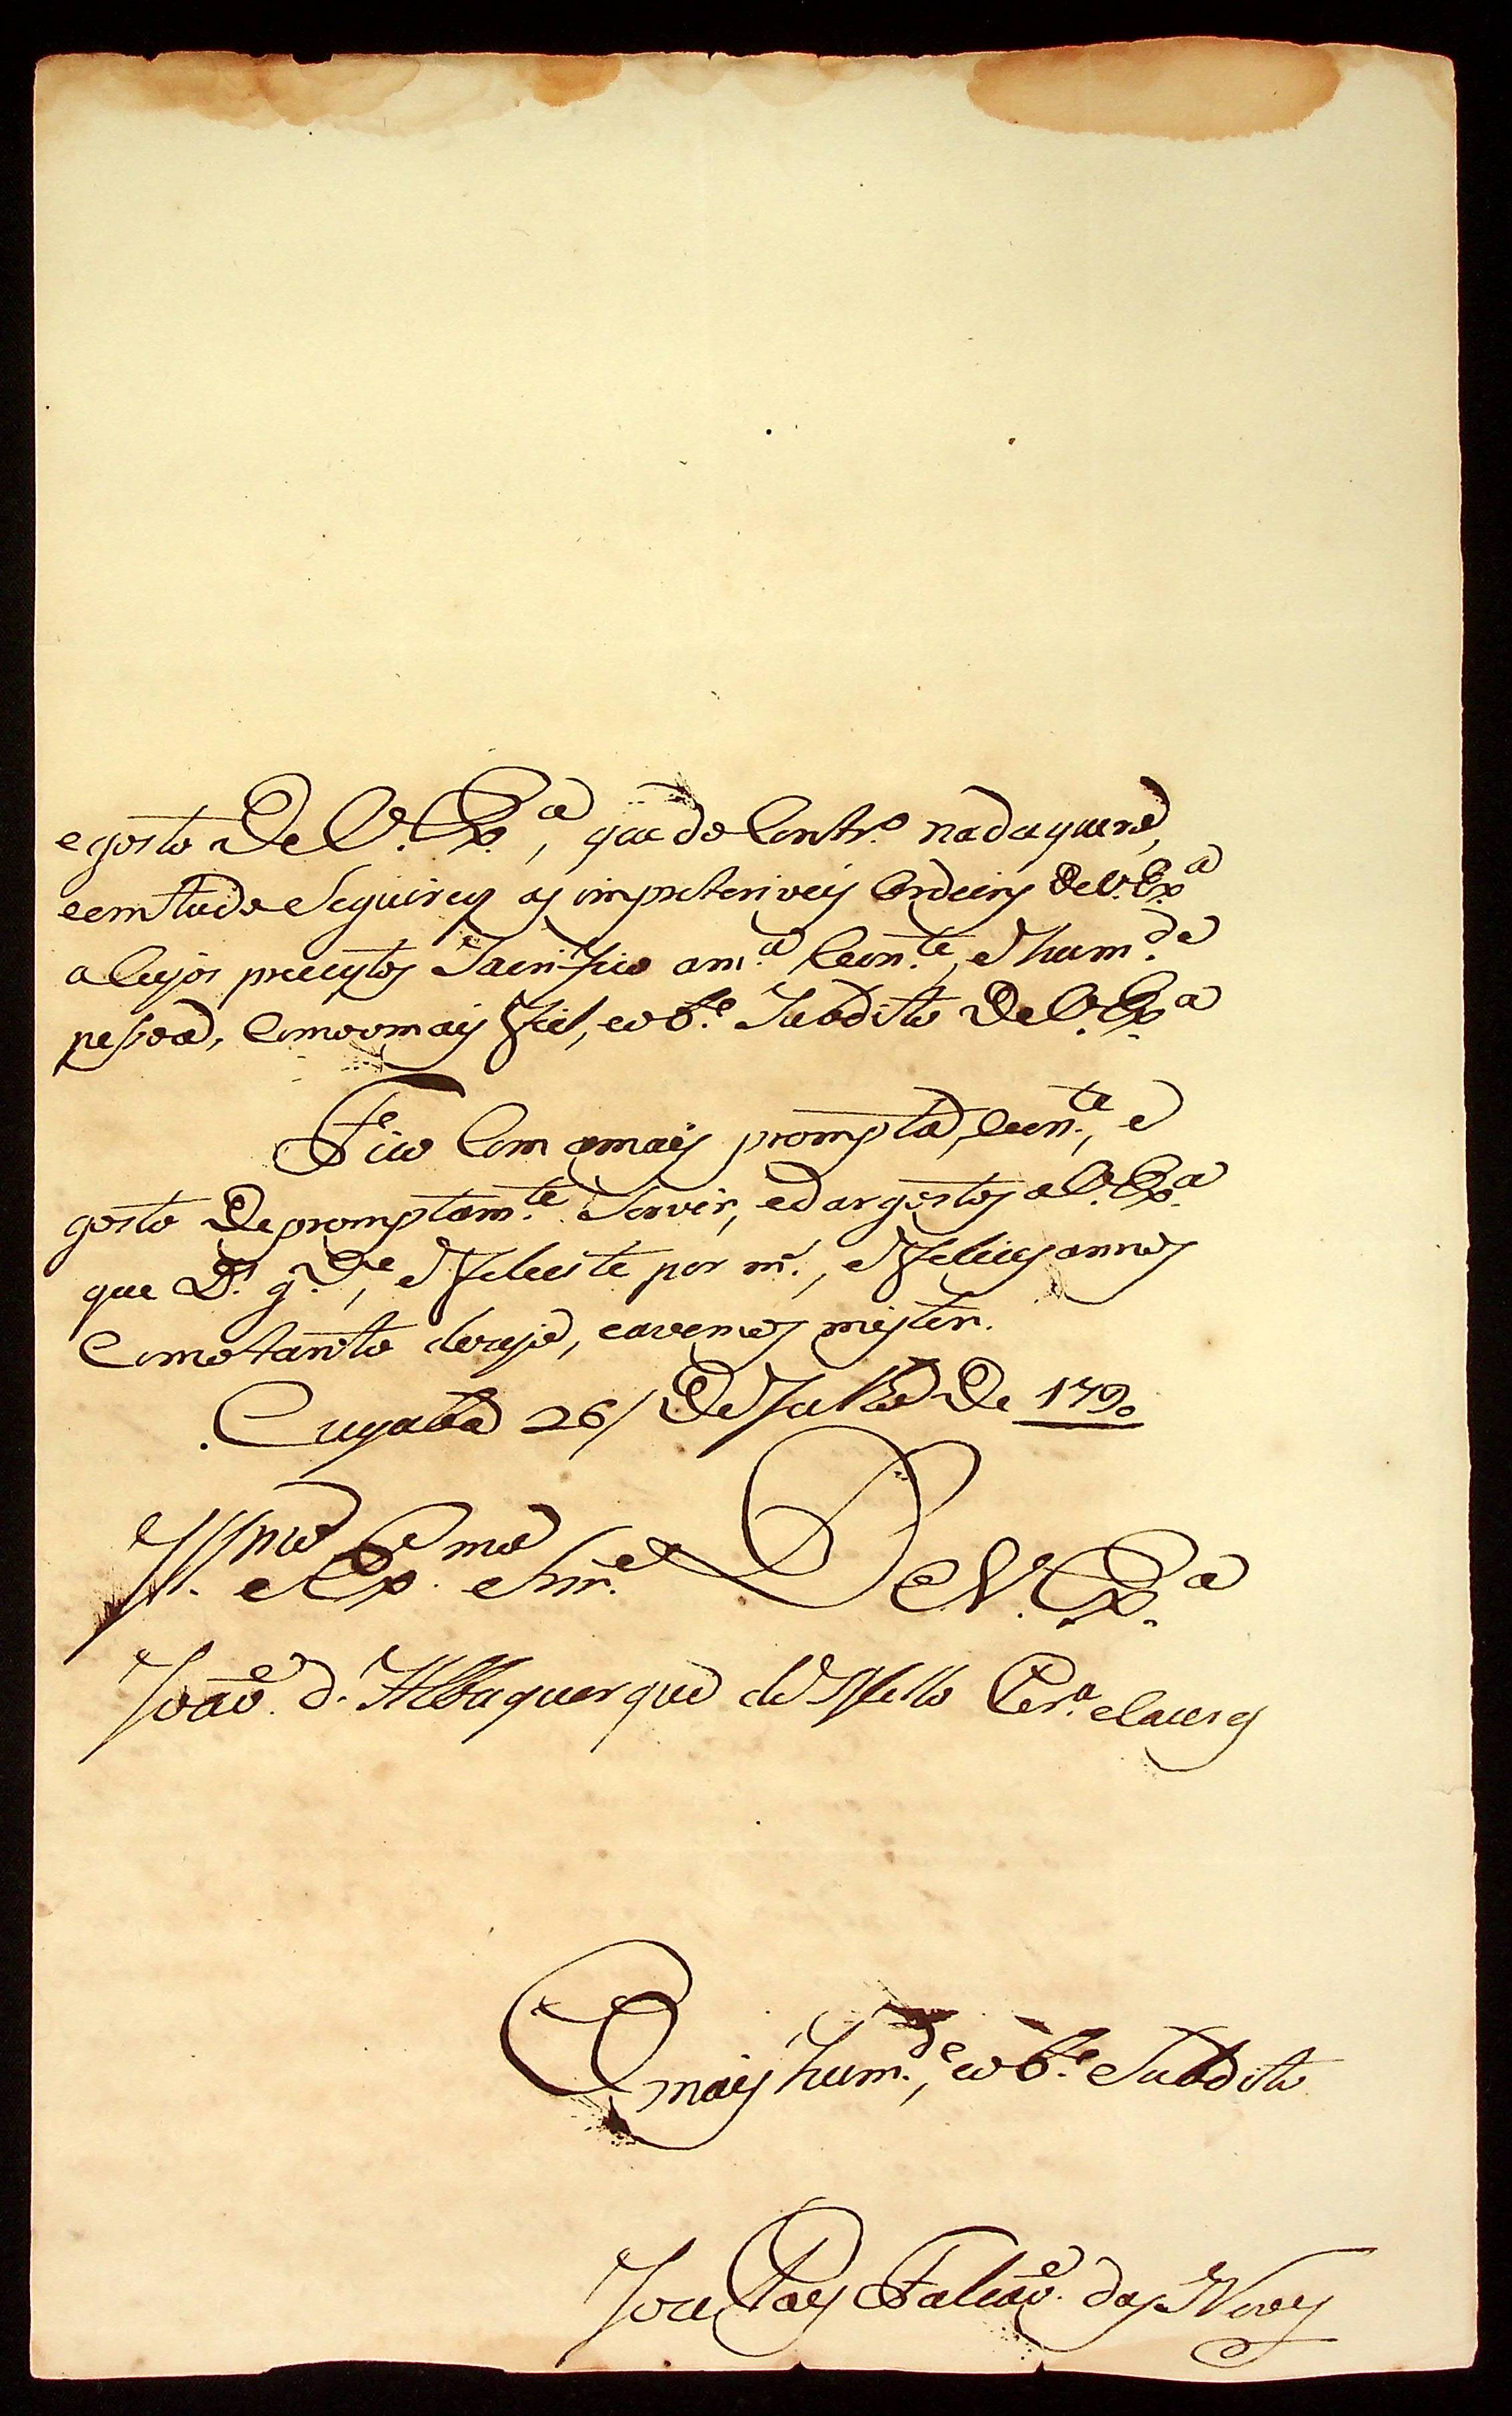 e gosto De V. Ex.ª, que do Contr.º nada quero,
e em tudo Seguirey as impreteriveis Ordeins De V. Ex.ª
a Cujos preceytos Sacrifico a m.ª Cein.te, e hum.de
pessoa, Como o mais Fiel, e o b.e Subdito De V. Ex.ª
Fico Com a mais prompta, e
gosto De promptam.te Servir, e dar gostos a V. Ex.ª
que D.s g.de, e Felecite por m.s, e Felices annos
Como tanto dezejo, e avemos mister.
Cuyabá 26 / De Julho De 1790
Ill.mo e Ex.mo Snr.e De V. Ex.ª
João d. Albuquerque de Mello Per.ª e Caceres
O mais hum.de, e o b.e Subdito
Joze Paes Falcão das Neves